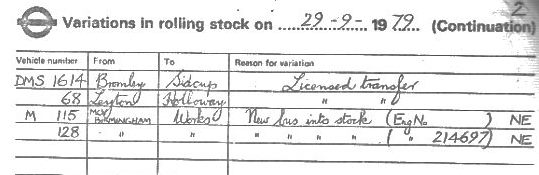 2
Variations in rolling stock on 29-9- 1979. (Continuation)
Vehicle number From To Reason for variation
DMS 1614 Bromley Sidcup Licensed transfer
68 Leyton Holloway " "
M 115 MCW BIRMINGHAM Works New bus into stock (Eng No ) NE
128 - " " " " " " ( " 214697) NE